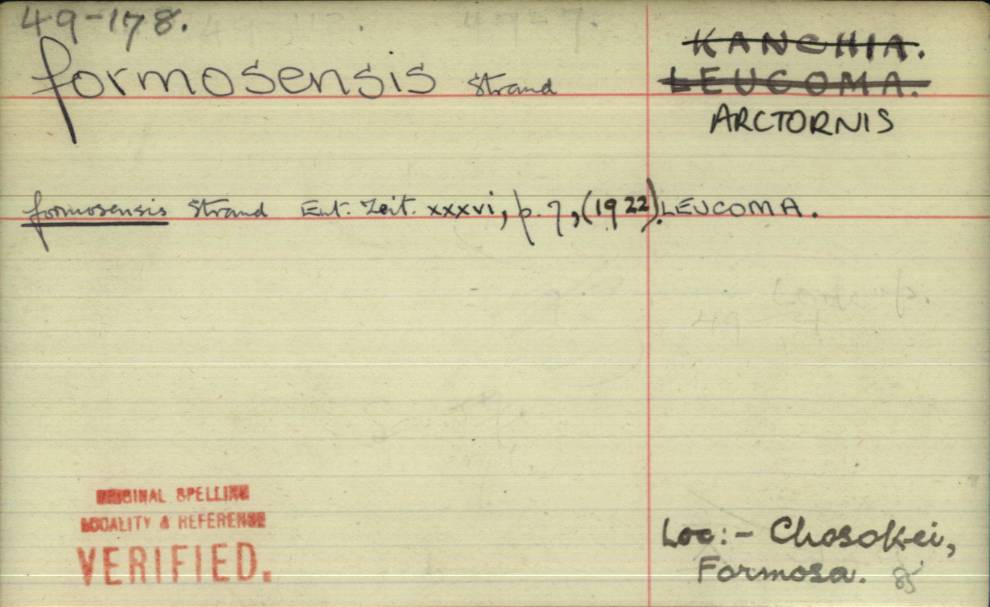 49-178.
formosensis Strand
KANCHIA.
LEUCOMA.
ARCTORNIS
formosensis Strand Ent. Zeit. xxxvi, p. 7, (1922). LEUCOMA.
ORIGINAL SPELLING
LOCALITY & REFERENCE
VERIFIED.
Loc:- Chosokei,
Formosa.